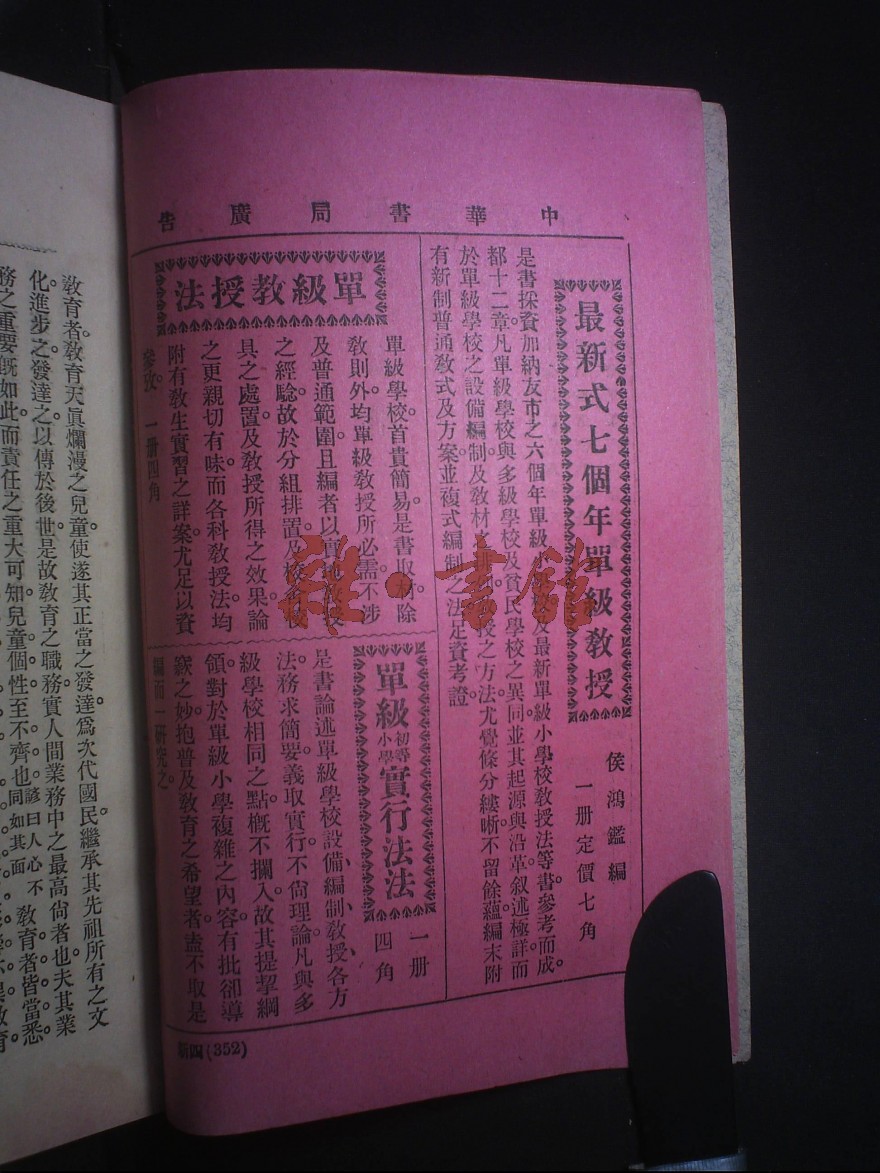 中華書局廣告
最新式七個年單級教授
侯鴻鑑編
一册定價七角
是書採資加納友市之六個年單級小學校及最新單級小學校教授法等書參考而成。
都十二章凡單級學校與多級學校及貧民學校之異同並其起源與沿革叙述極詳而
於單級學校之設備編制及教材之授之方法尤覺條分縷晰不留餘蘊編末附
有新制普通教式及方案並複式編制之法足資考證。
單級教授法
單級學校首貴簡易是書取材除
教則外均單級教授所必需不涉
及普通範圍且編者以實
之經驗故於分組排置及校
具之處置及教授所得之效果論
之更親切有味而各科教授法均
附有教生實習之詳案尤足以資
參攷。 一册四角
單級初等小學實行法法
一册
四角
是書論述單級學校設備、編制、教授各方
法務求簡要義取實行不尙理論凡與多
級學校相同之點槪不攔入故其提挈綱
領對於單級小學複雜之內容有批卻導
窾之妙抱普及教育之希望者盍不取是
編而一研究之
新四(352)
教育者教育天眞爛漫之兒童使遂其正當之發達爲次代國民繼承其先祖所有之文
化進步之發達之以傳於後世是故教育之職務實人間業務中之最高尙者也夫其業
務之重要旣如此而責任之重大可知兒童個性至不齊也諺曰人心不同如其面教育者皆當悉
雜·書館